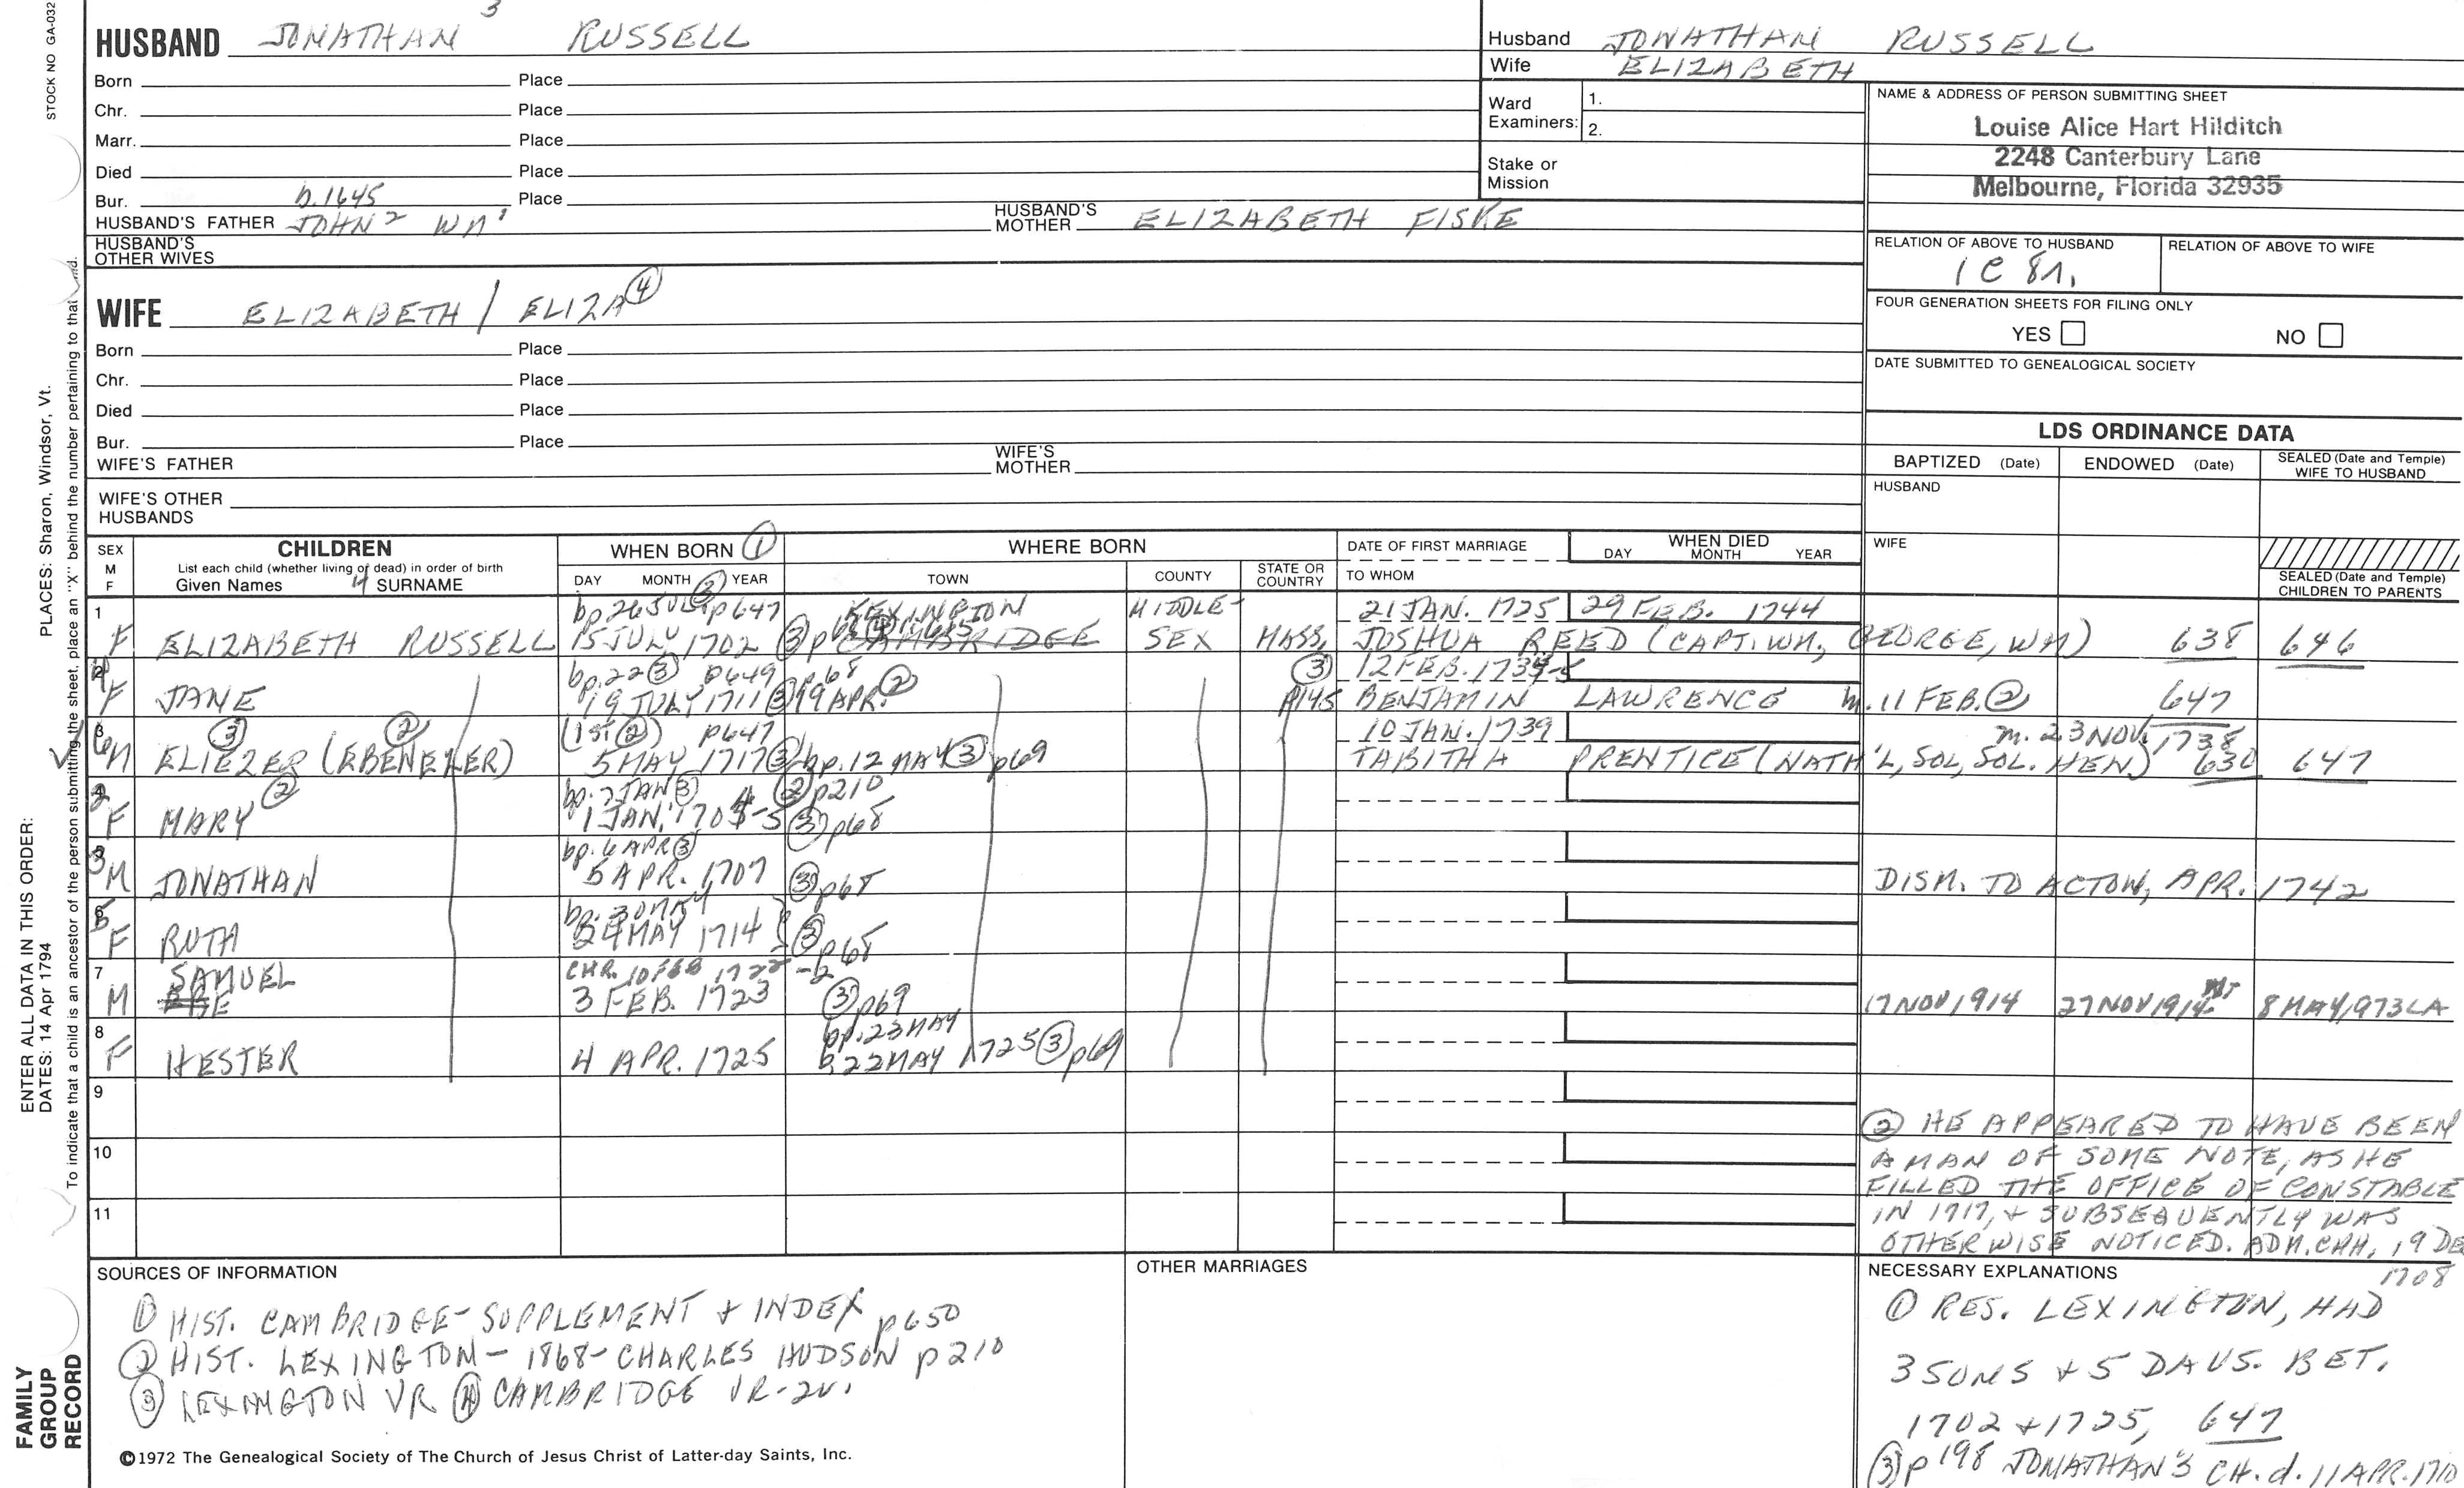 STOCK NO GA-032
PLACES: Sharon, Windsor, Vt.
ENTER ALL DATA IN THIS ORDER:
DATES: 14 Apr 1794
To indicate that a child is an ancestor of the person submitting the sheet, place an "X" behind the number pertaining to that
FAMILY
GROUP
RECORD
3
HUSBAND JONATHAN RUSSELL
Born Place
Chr. Place
Marr. Place
Died Place
Bur. b.1645 Place
HUSBAND'S FATHER JOHN² WM¹ HUSBAND'S MOTHER ELIZABETH FISKE
HUSBAND'S
OTHER WIVES
WIFE ELIZABETH / ELIZA ④
Born Place
Chr. Place
Died Place
Bur. Place
WIFE'S FATHER WIFE'S MOTHER
WIFE'S OTHER
HUSBANDS
Husband JONATHAN RUSSELL
Wife ELIZABETH
Ward
Examiners:
1.
2.
Stake or
Mission
NAME & ADDRESS OF PERSON SUBMITTING SHEET
Louise Alice Hart Hilditch
2248 Canterbury Lane
Melbourne, Florida 32935
RELATION OF ABOVE TO HUSBAND
1 C 8r.
RELATION OF ABOVE TO WIFE
FOUR GENERATION SHEETS FOR FILING ONLY
YES NO
DATE SUBMITTED TO GENEALOGICAL SOCIETY
LDS ORDINANCE DATA
BAPTIZED (Date) ENDOWED (Date) SEALED (Date and Temple)
WIFE TO HUSBAND
HUSBAND
WIFE
SEALED (Date and Temple)
CHILDREN TO PARENTS
SEX
M
F
CHILDREN
List each child (whether living or dead) in order of birth
Given Names 4 SURNAME
WHEN BORN ①
DAY MONTH YEAR
WHERE BORN
TOWN COUNTY STATE OR COUNTRY
DATE OF FIRST MARRIAGE
TO WHOM
WHEN DIED
DAY MONTH YEAR
1 bp 26 JUL ③ p647 LEXINGTON MIDDLE- 21 JAN. 1725 29 FEB. 1744
F ELIZABETH RUSSELL 15 JULY 1702 ③ CAMBRIDGE SEX MASS, JOSHUA REED (CAPT. WM, GEORGE, WM) 638 646
bp.22 ③ p649 p68 ③ 12 FEB. 1734-5
F JANE 19 JULY 1711 ③ 19 APR. ② p145 BENJAMIN LAWRENCE m. 11 FEB. ② 647
③ ② (1st ②) p647 10 JAN. 1739 m. 23 NOV. 1738
6 M ELIEZER (EBENEZER) 5 MAY 1717 ③ bp. 12 MAY ③ p69 TABITHA PRENTICE (NATH'L, SOL, SOL. HEN) 630 647
② bp. 7 JAN ③ ② p210
F MARY 1 JAN. 1704-5 ③ p68
bp. 6 APR ③
3 M JONATHAN 5 APR. 1707 ③ p68 DISM. TO ACTON, APR. 1742
bp. 30 MAY
F RUTH 24 MAY 1714 ③ p68
7 SAMUEL CHR. 10 FEB 1722 -2
M 3 FEB. 1723 ③ p69 17 NOV 1914 27 NOV 1914 8 MAY 1973 LA
8 bp. 23 MAY
F HESTER 4 APR. 1725 b. 22 MAY 1725 ③ p69
9
10
11
② HE APPEARED TO HAVE BEEN
A MAN OF SOME NOTE, AS HE
FILLED THE OFFICE OF CONSTABLE
IN 1717, + SUBSEQUENTLY WAS
OTHERWISE NOTICED. ADM. CHH, 19 DE
1708
SOURCES OF INFORMATION
① HIST. CAMBRIDGE- SUPPLEMENT + INDEX p650
② HIST. LEXINGTON- 1868- CHARLES HUDSON p210
③ LEXINGTON VR ④ CAMBRIDGE VR-2V.
OTHER MARRIAGES
NECESSARY EXPLANATIONS
① RES. LEXINGTON, HAD
3 SONS + 5 DAUS. BET.
1702 + 1725, 647
③ p198 JONATHAN'S CH. d. 11 APR. 1710
©1972 The Genealogical Society of The Church of Jesus Christ of Latter-day Saints, Inc.